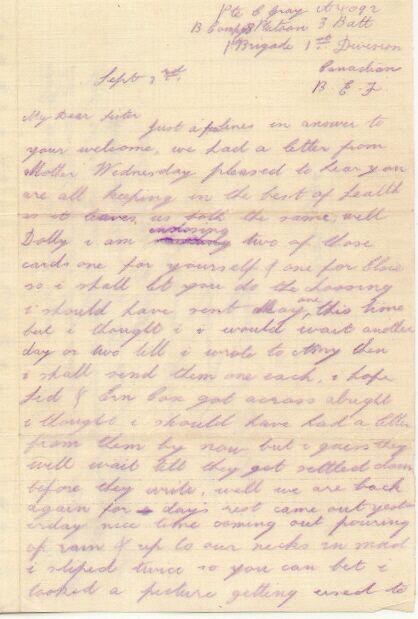 Pte C Gray A4092
B Comp 8 Platoon 3 Batt
1 Brigade 1st Division
Canadian
B. E. F.
Sept 3rd.
My Dear Sister
Just a few lines in answer to
your welcome, we had a letter from
Mother Wednesday pleased to hear you
are all keeping in the best of health
as it leaves us both the same, well
Dolly i am enclosing two of those
cards one for yourself & one for
so i shall let you do the choosing
i should have sent May one, this time
but i thought i i would wait another
day or two till i wrote to Amy then
i shall send them one each, i hope
Sid & Ern Cox got across alright
i thought i should have had a letter
from them by now but i guess they
will wait till they get settled down
before they write, well we are back
again for days rest came out yest
erday nice time coming out pouring
of rain & up to our necks in mud
i sliped twice so you can bet i
looked a picture getting used to